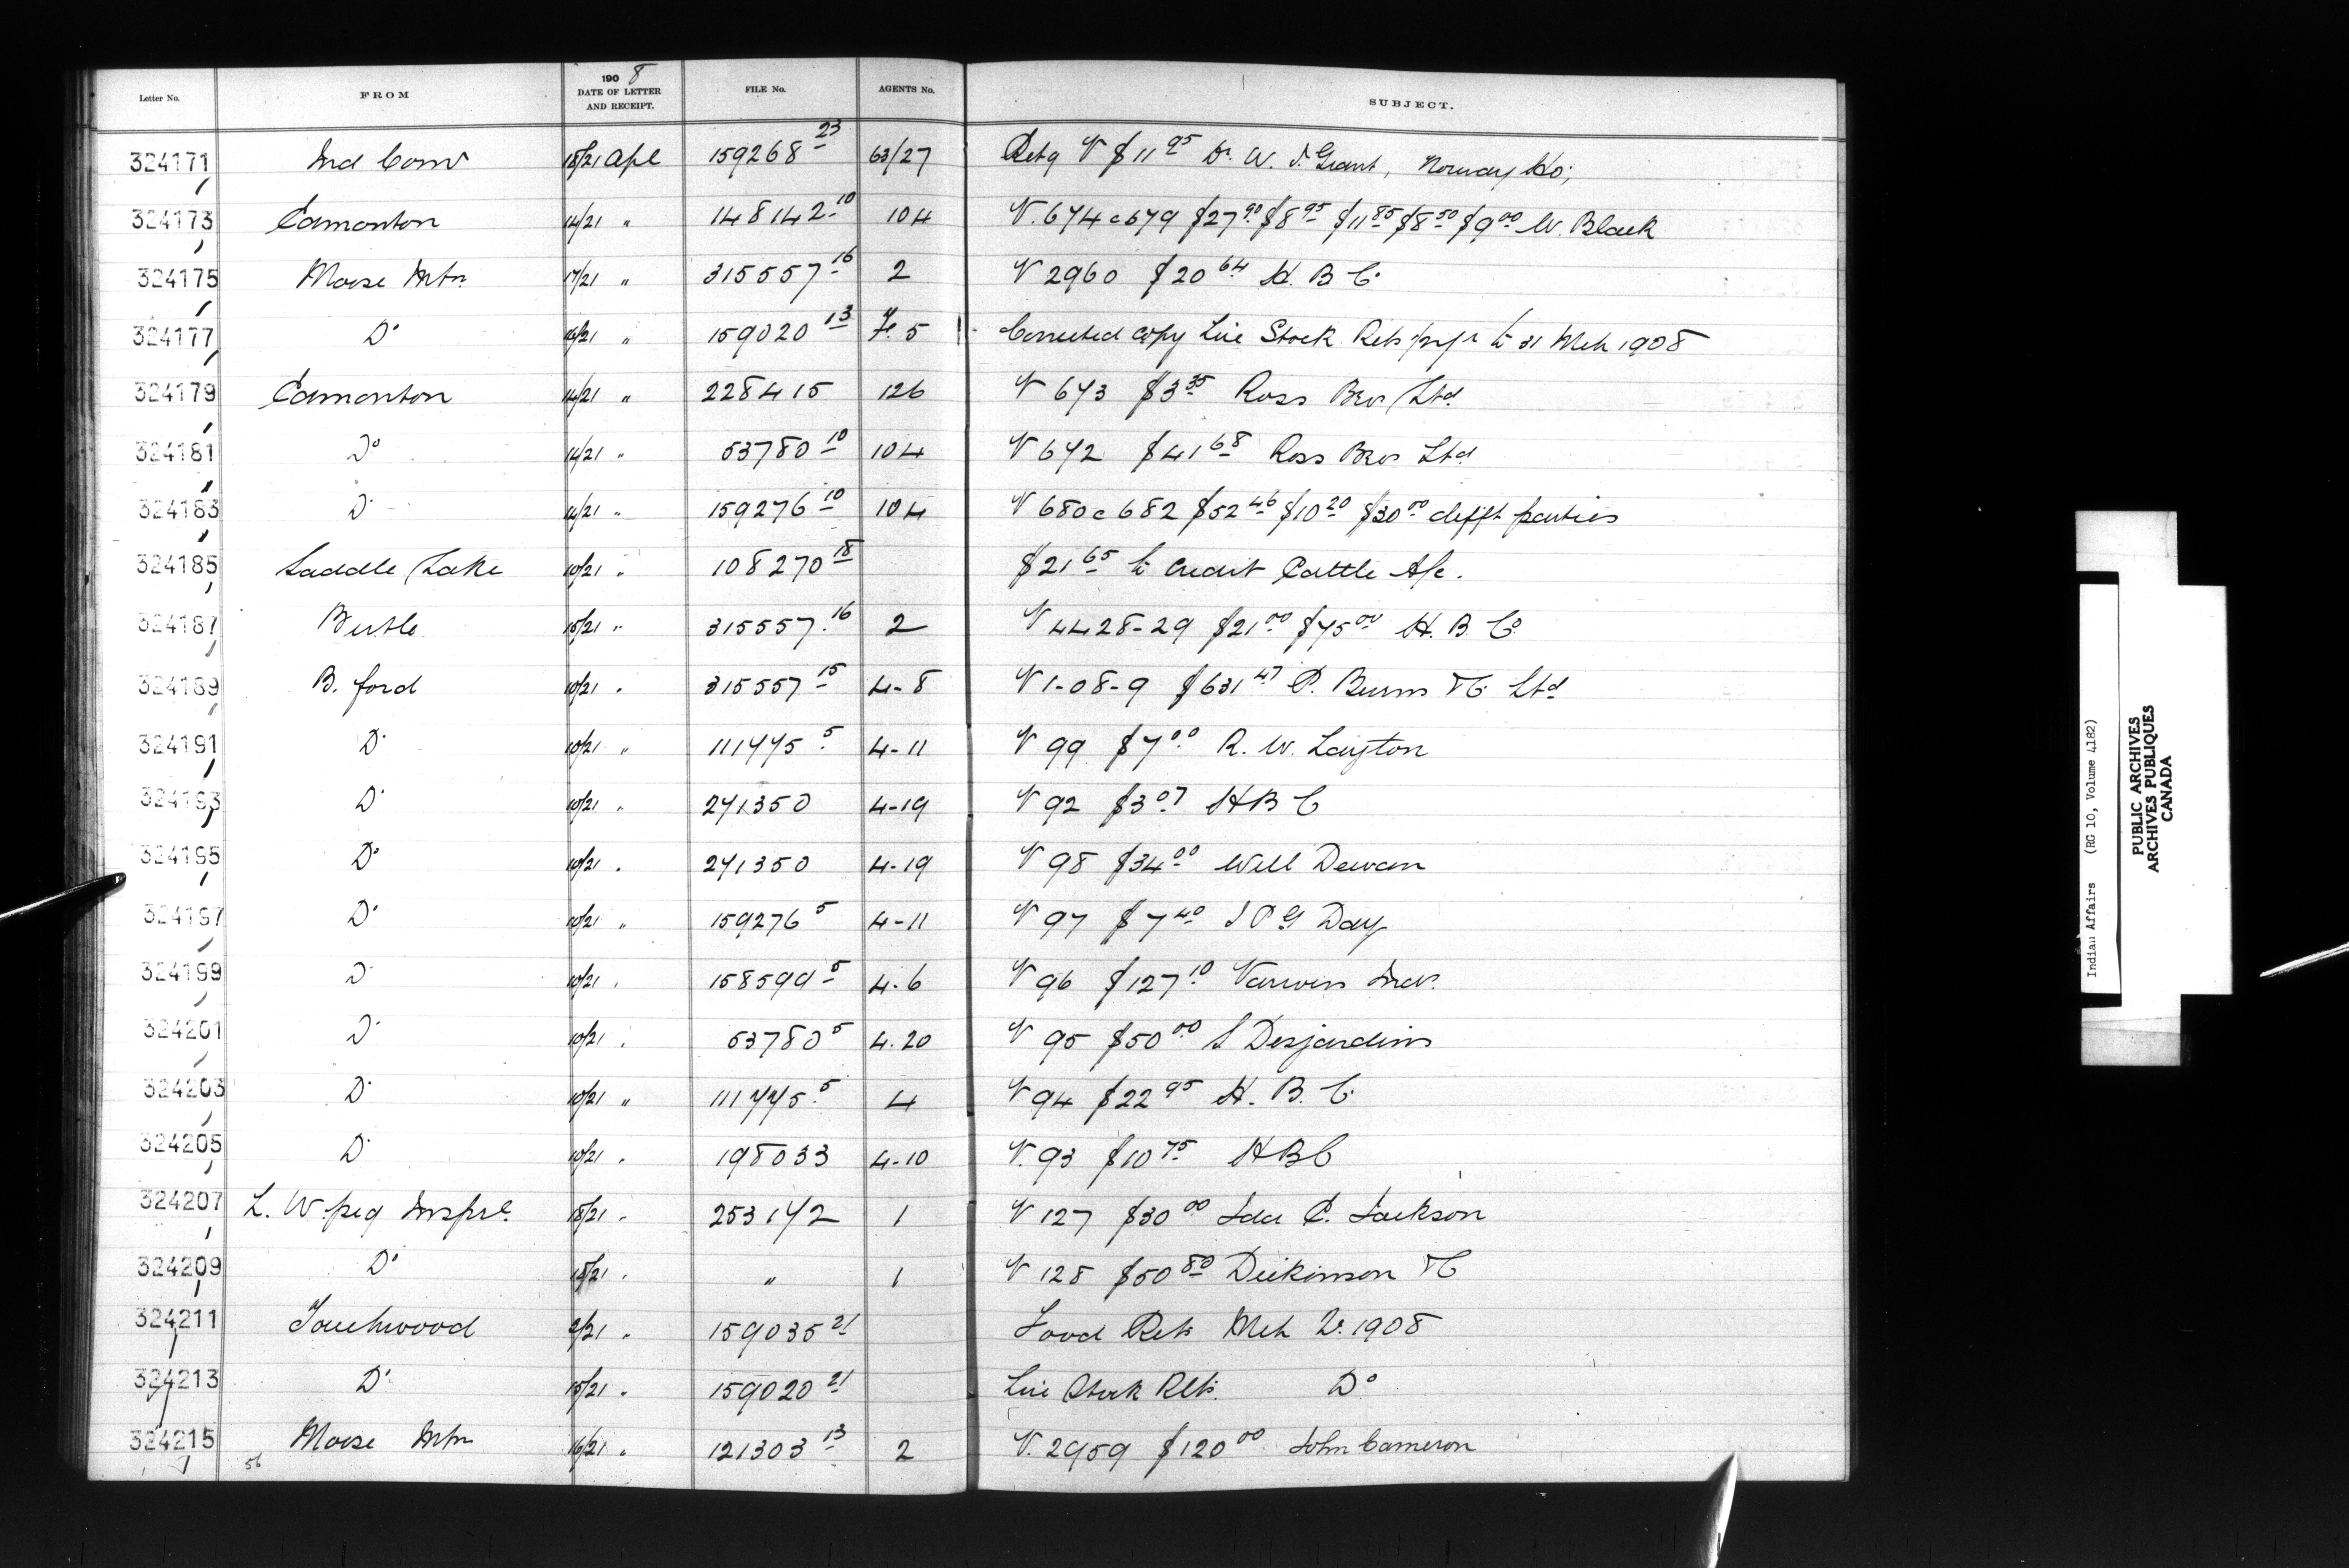 Letter No. FROM 1908 DATE OF LETTER AND RECEIPT. FILE No. AGENTS No. SUBJECT.
324171 Ind Comr 18/21 Apl 159268 23 63/27 Retg V $11 95 Dr. W. J. Grant, Norway Ho;
324173 Edmonton 14/21 " 148142 10 104 V. 674 c 679 $27 90 $8 95 $11 85 $8 50 $9 00 W. Black
324175 Moose Mtn 17/21 " 315557 16 2 V 2960 $20 64 H. B. C.
324177 Do 16/21 " 159020 13 F. 5 Corrected copy Live Stock Rets to 31 Mch 1908
324179 Edmonton 14/21 " 228415 126 V 673 $3 35 Ross Bros Ltd
324181 Do 14/21 " 53780 10 104 V 672 $41 68 Ross Bros Ltd
324183 Do 14/21 " 159276 10 104 V 680 c 682 $52 46 $10 20 $30 00 difft parties
324185 Saddle Lake 10/21 " 108270 18 $21 65 to credit Cattle A/c.
324187 Birtle 15/21 " 315557 16 2 V 4428-29 $21 00 $75 00 H. B. Co
324189 B. ford 10/21 " 315557 15 4-8 V 1-08-9 $631 47 P. Burns & C. Ltd
324191 Do 10/21 " 111775 5 4-11 V 99 $7 00 R. W. Layton
324193 Do 10/21 " 271350 4-19 V 92 $3 07 HBC
324195 Do 10/21 " 271350 4-19 V 98 $34 00 Will Dewan
324197 Do 10/21 " 159276 5 4-11 V 97 $7 40 J P G Day
324199 Do 10/21 " 158599 5 4-6 V 96 $127 10 Various Inds.
324201 Do 10/21 " 53780 5 4.20 V 95 $50 00 S Desjardins
324203 Do 10/21 " 111775 5 4 V 94 $22 95 H. B. C.
324205 Do 10/21 " 198033 4-10 V. 93 $10 75 HBC
324207 L. W.peg Inspte. 18/21 " 253172 1 V 127 $30 00 Ida C. Jackson
324209 Do 18/21 " " 1 V 128 $50 80 Dickinson & C
324211 Touchwood 2/21 " 159035 21 Food Rets Mch Qr. 1908
324213 Do 15/21 " 159020 21 Live Stock Rets. Do
324215 Moose Mtn 16/21 " 121303 13 2 V. 2959 $120 00 John Cameron
56
Indian Affairs (RG 10, Volume 4182)
PUBLIC ARCHIVES
ARCHIVES PUBLIQUES
CANADA